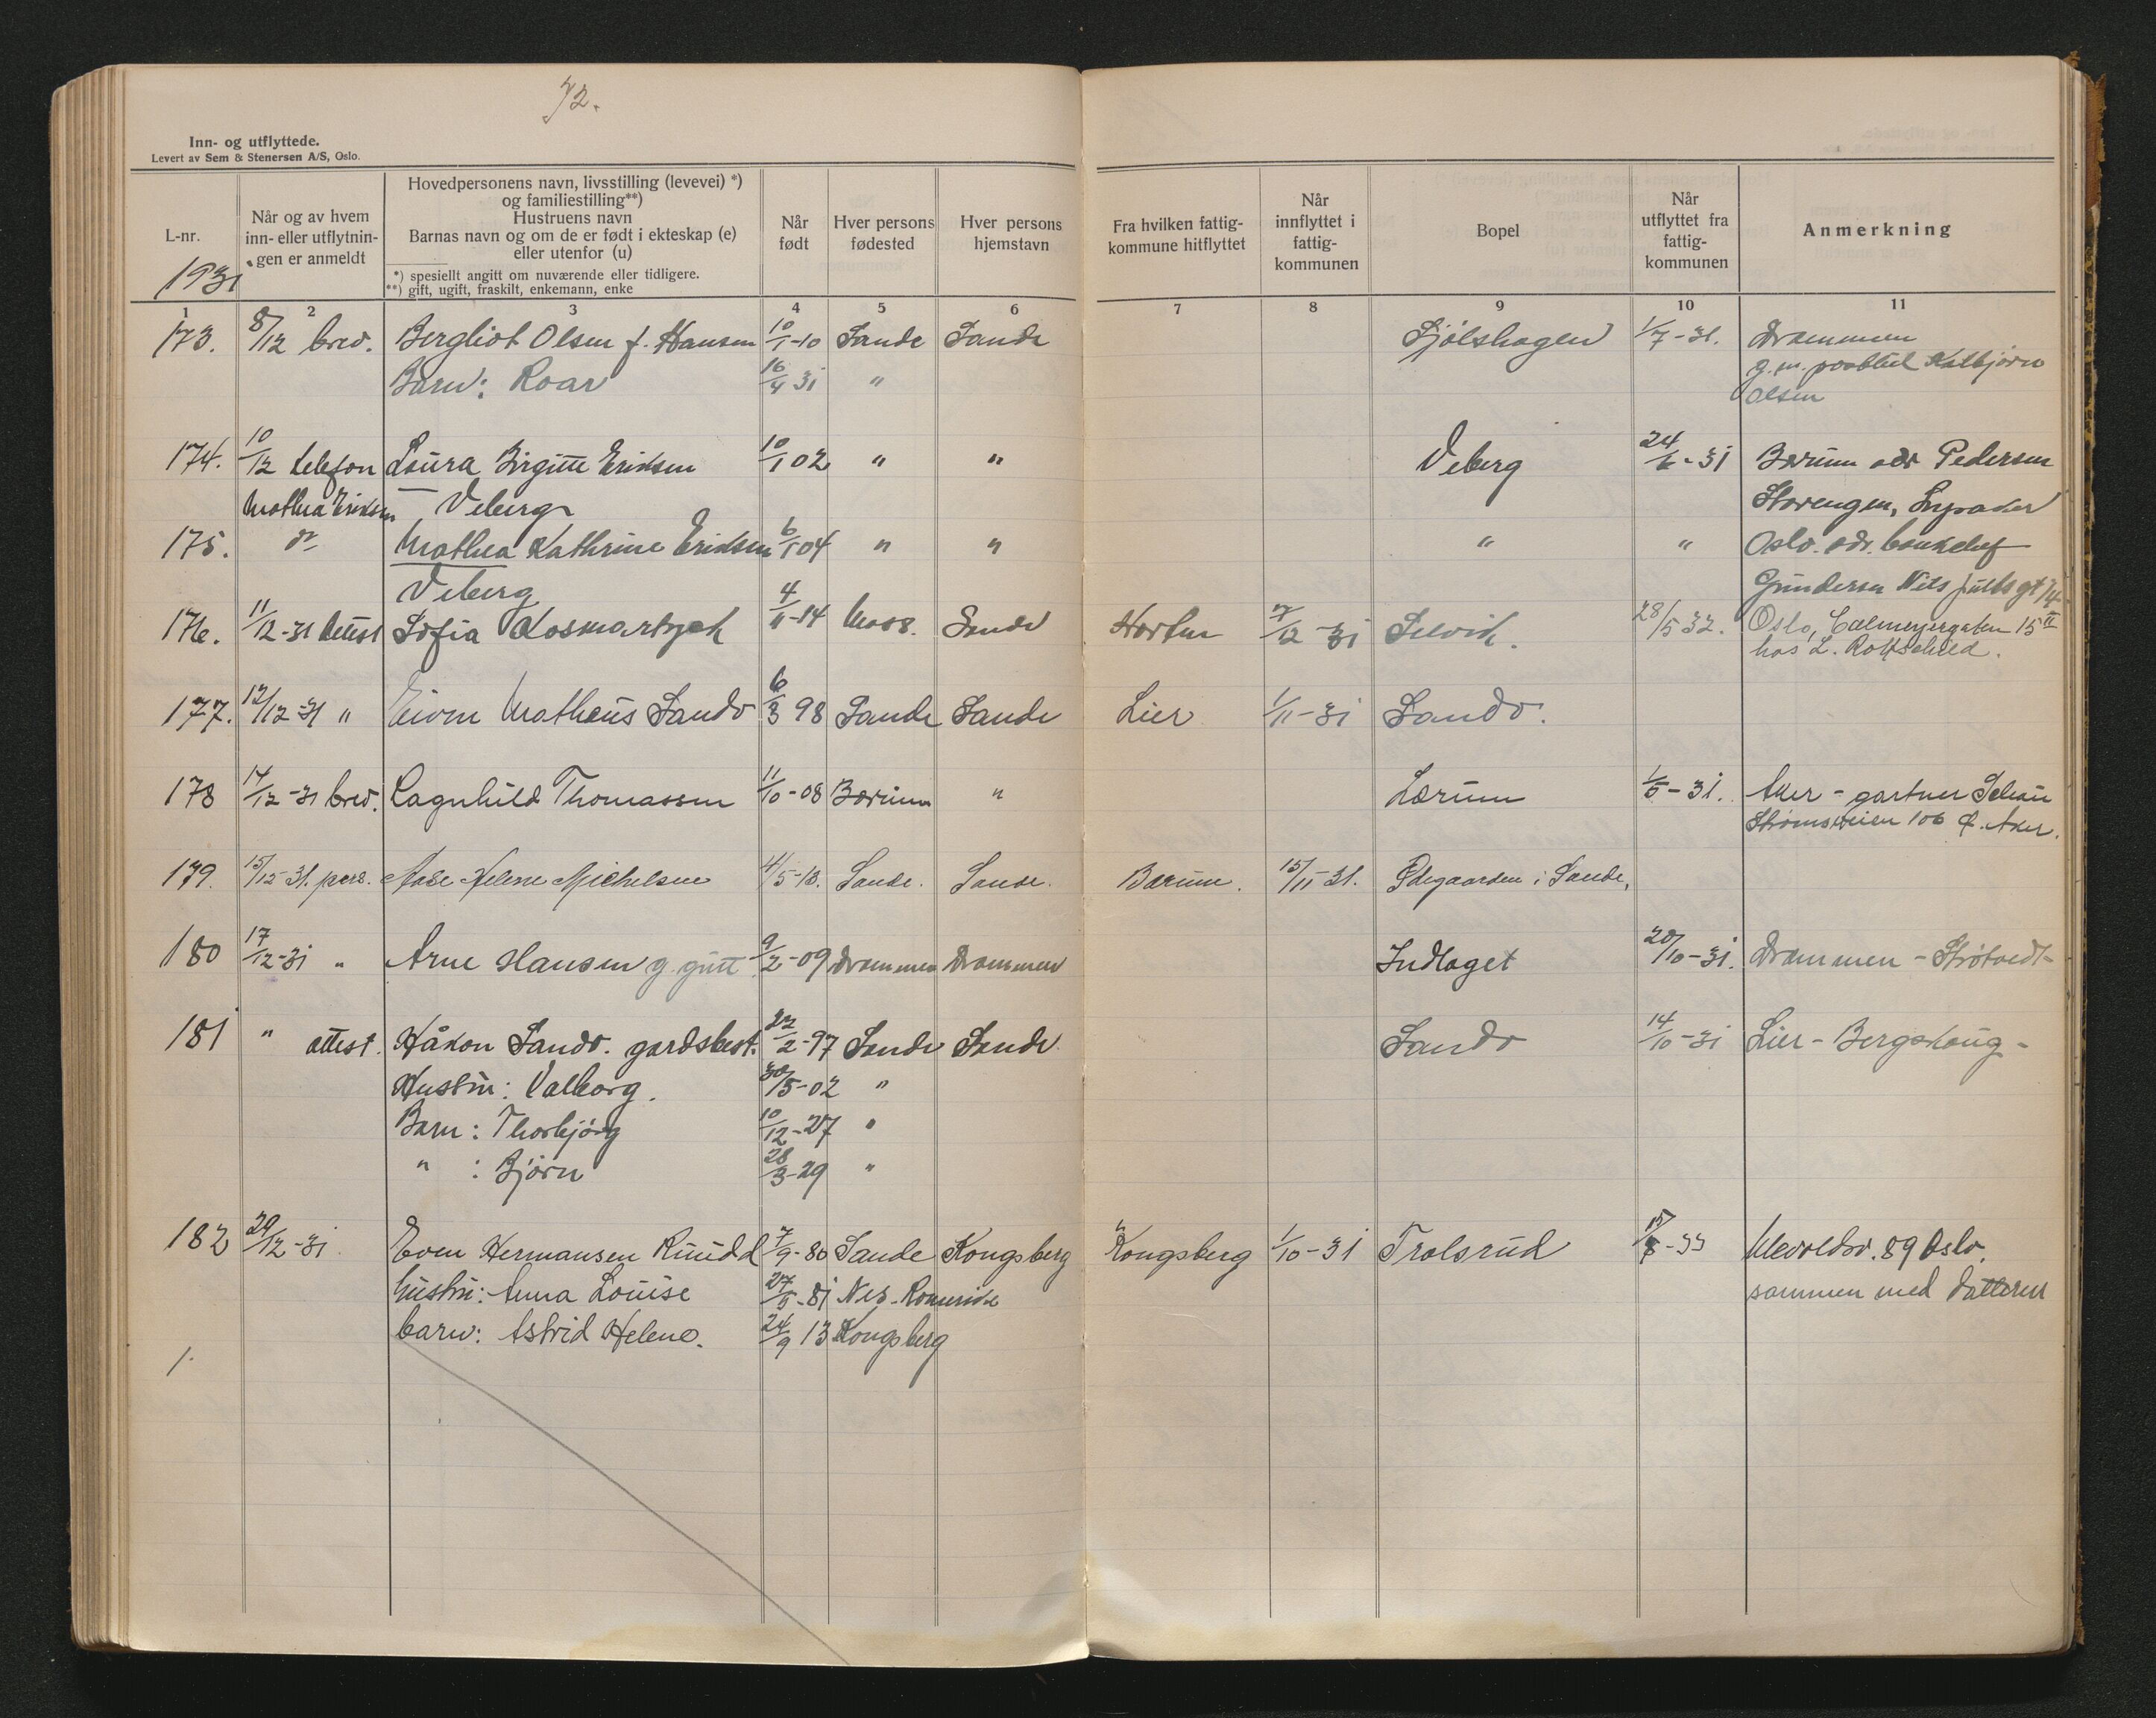 72.
Inn- og utflyttede.
Levert av Sem & Stenersen A/S, Oslo.
L-nr.
1931
Når og av hvem
inn- eller utflytnin-
gen er anmeldt
Hovedpersonens navn, livsstilling (levevei) *)
og familiestilling**)
Hustruens navn
Barnas navn og om de er født i ekteskap (e)
eller utenfor (u)
*) spesiellt angitt om nuværende eller tidligere.
**) gift, ugift, fraskilt, enkemann, enke
Når
født
Hver persons
fødested
Hver persons
hjemstavn
Fra hvilken fattig-
kommune hitflyttet
Når
innflyttet i
fattig-
kommunen
Bopel
Når
utflyttet fra
fattig-
kommunen
Anmerkning
1 2 3 4 5 6 7 8 9 10 11
173. 8/12 brev. Bergliot Olsen f. Hansen 10/1-10 Sande Sande Sjølshagen 1/7-31. Drammen
Barn: Roar 16/4 31 " g.m.
Olsen
174. 10/12 telefon Laura Birgitte Eriksen 10/1 02 " " Veberg 24/6-31 Bærum adr Pedersen
Mathea Eriksen Veberg Storengen, Lysaker
175. do Mathea Kathrine Eriksen 6/1 04 " " " " Oslo. adr.
Veberg Gundersen Nils
176. 11/12-31 attest Sofia 4/11-14 Moss. Sande Horten 7/12-31 Selvik. 28/5 32. Oslo, Calmeyergaten 15 II
hos L. Rothschild.
177. 12/12-31 " Matheus Sando 6/3 98 Sande Sande Lier 1/11-31 Sando.
178 14/12-31 brev. Ragnhild Thomassen 11/10-08 Bærum " Lærum 1/5-31. Aker - gartner
Strømsveien 106 Ø. Aker.
179. 15/12-31. pers. Aase Helene Michelsen 4/5-13. Sande. Sande. Bærum. 15/11-31. Ødegaarden i Sande,
180 17/12-31 " Arne Hansen g. gutt 9/2-09 Drammen Drammen Indlaget 20/10-31. Drammen - Strøtvedt-
181 " attest. Håkon Sando. gardsbest. 22/2-97 Sande Sande Sando 14/10-31 Lier - Bergskaug -
Hustru: Valborg. 30/5-02 "
Barn: Thorbjörg 10/12-27 "
" : Björn 28/3-29 "
182 29/12-31. Even Hermansen Ruudd 7/9-80 Sande Kongsberg Kongsberg 1/10-31 Trolsrud 15/8-33 Ulevoldsv. 89 Oslo.
hustru: Anna Louise 27/5-81 Nes-Romerike sammen med datteren
barn: Astrid Helene. 24/9 13 Kongsberg
1.